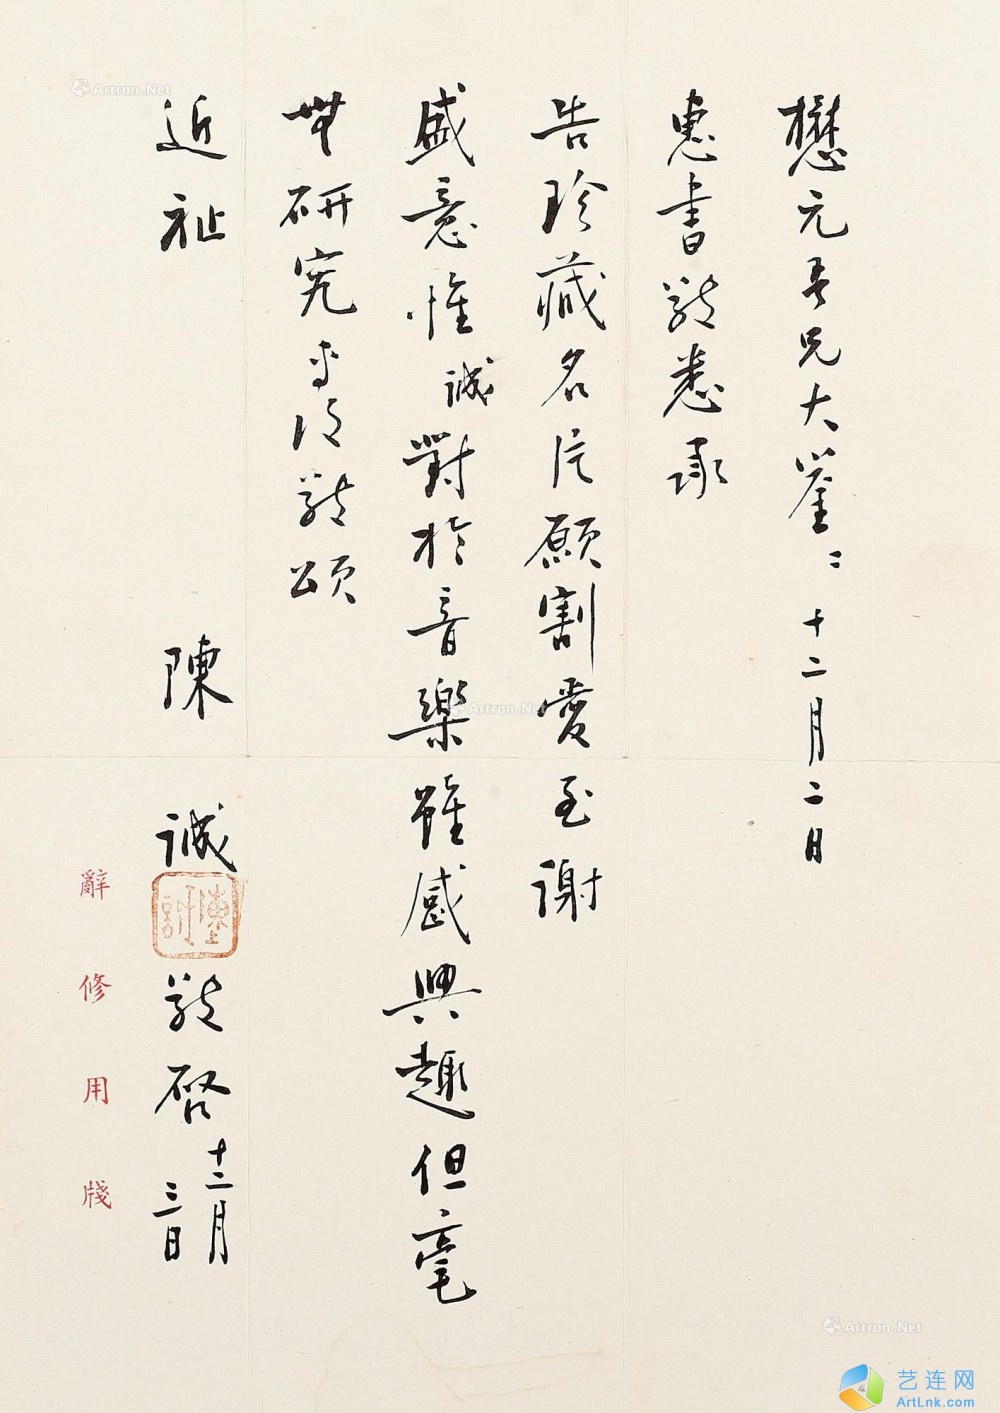 懋元吾兄大鑒：十二月二日
惠書敬悉承
告珍藏名片願割愛至謝
盛意惟誠對於音樂雖感興趣但毫
無研究專復敬頌
近祉
陳誠敬啓十二月三日
陳誠
辭修用牋
Artron.Net
Artron.Net
Artron.Net
艺连网
ArtLnk.com